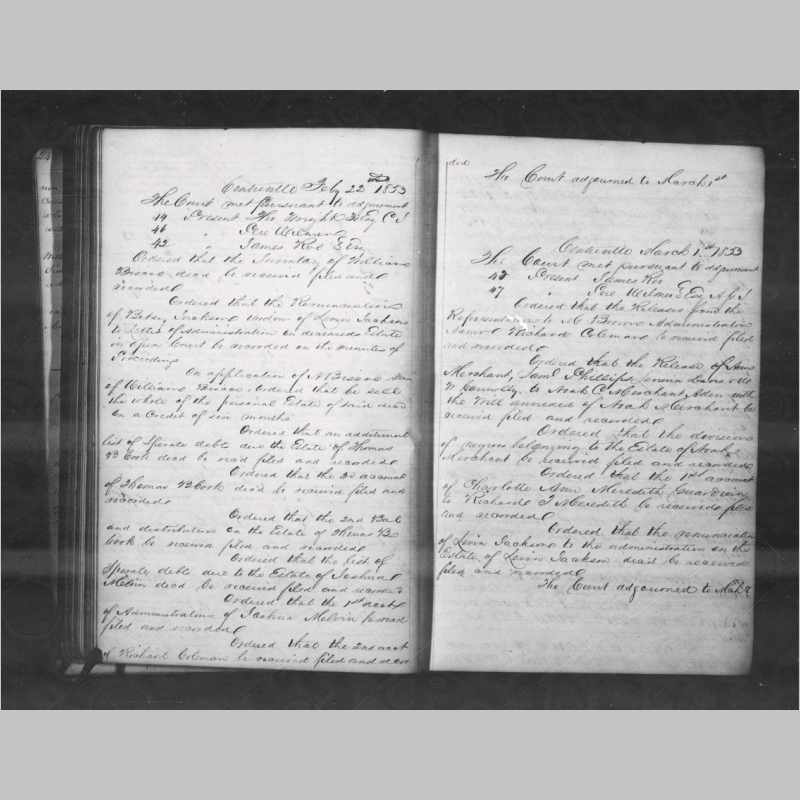 Centreville Feby 22nd 1853
The Court met pursuant to adjournment
44 Present Tho Wright Esq C J
46 " Pere Wilmer
42 " James Roe Esq
Ordered that the Inventory of William
Briscoe decd be received filed and
recorded
Ordered that the Renunciation
of Betsey Jackson widow of Levin Jackson
to Letters of Administration on deceaseds Estate
in open Court be recorded on the minutes of
Proceedings
On application of A Briscoe
of William Briscoe Ordered that he sell
the whole of the personal Estate of said decd
on a Credit of six months
Ordered that an additional
list of Sperate debts due the Estate of Thomas
B Cook decd be recd filed and recorded
Ordered that the 2d account
of Thomas B Cook decd be received filed and
recorded
Ordered that the 2nd Bal
and distribution on the Estate of Thomas B
Cook be received filed and recorded
Ordered that the list of
Sperate debts due to the Estate of Joshua
Melvin decd be received filed and recorded
Ordered that the 1st acct
of Administration of Joshua Melvin be recd
filed and recorded
Ordered that the 2nd acct
of Richard Coleman be received filed and recor
ded
The Court adjourned to March 1st
Centreville March 1st 1853
The Court met pursuant to adjournment
42 Present James Roe
47 " Pere Wilmer Esq A J J
Ordered that the Releases from the
Representatives to M Brown Administration
Richard Coleman be received filed
and recorded
Ordered that the Release of Ann
Merchant, Saml Phillips,
W Connolly to Noah C Merchant Adm with
the Will annexed of Noah Merchant be
received filed and recorded
Ordered that the division
of negroes belonging to the Estate of Noah
Merchant be received filed and recorded
Ordered that the 1st account
of Charlotte Ann Meredith Guardian
to Richard J Meredith be received filed
and recorded
Ordered that the renunciation
of Levin Jackson to the administration on the
Estate of Levin Jackson decd be received
filed and recorded
The Court adjourned to Mch 8